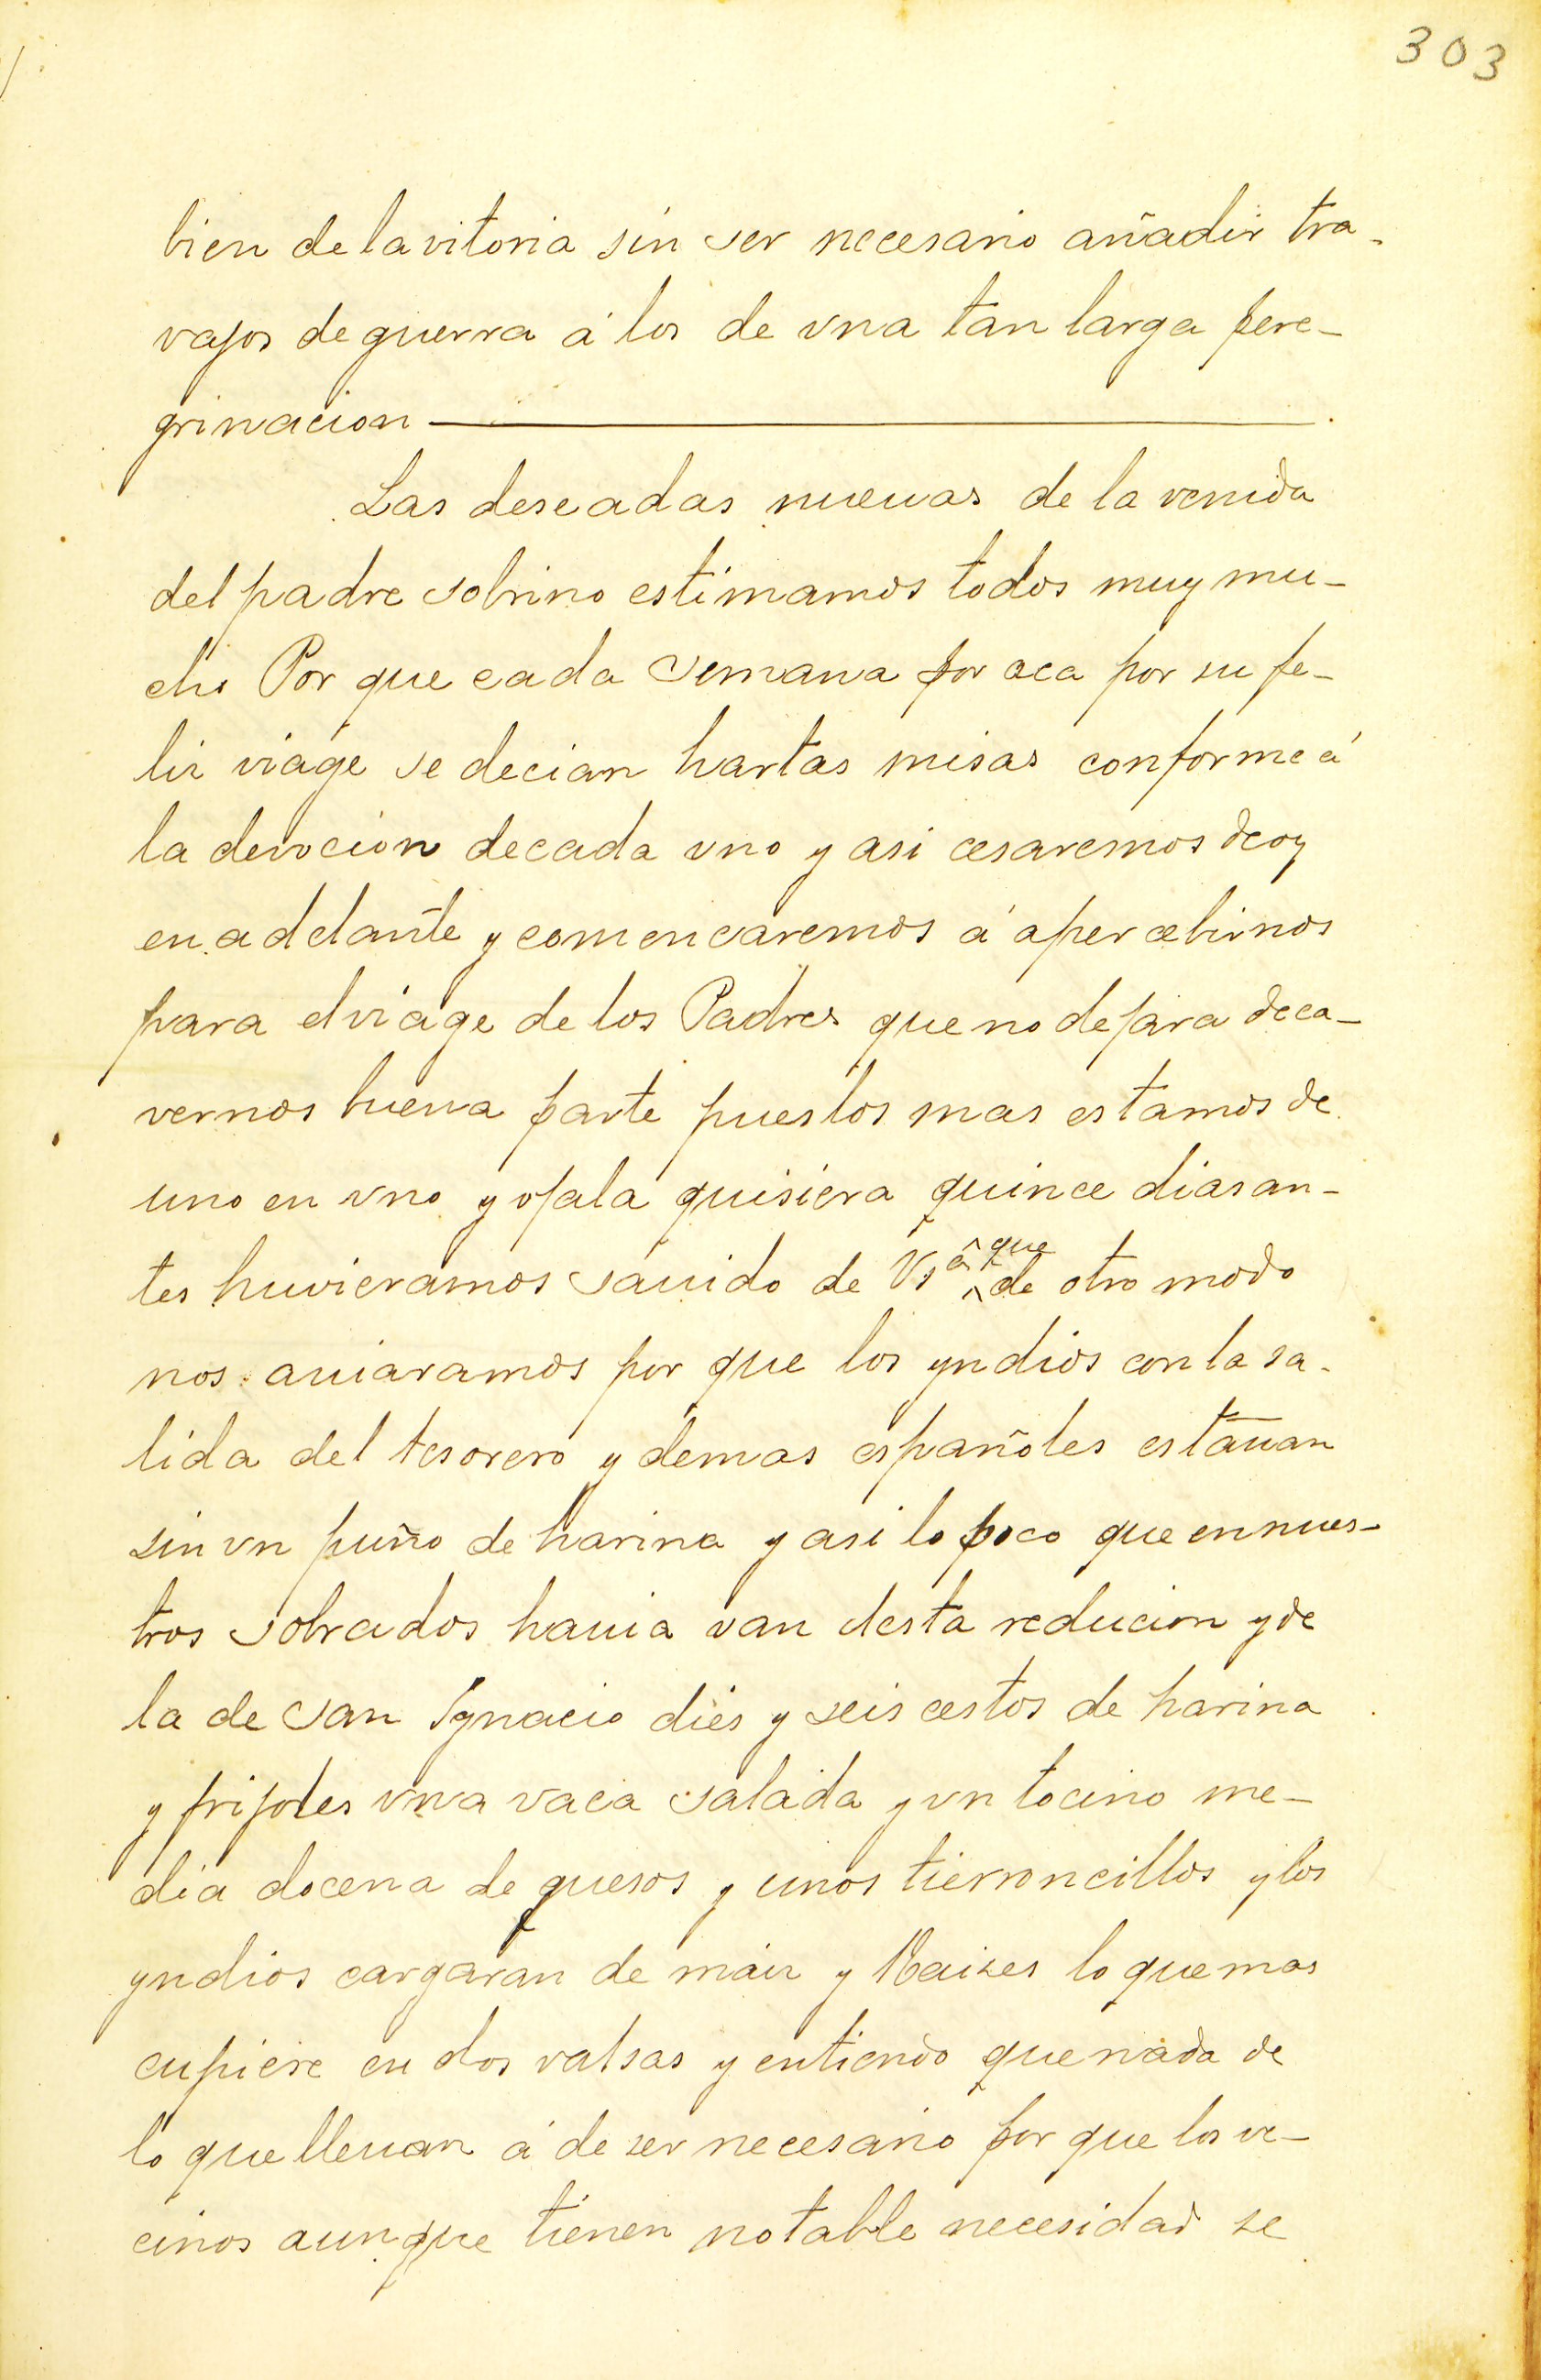 303
bien de la vitoria sin ser necesario añadir tra-
vajos de guerra á los de vna tan larga pere-
grinacion
Las deseadas nueuas de la venida
del padre sobrino estimamos todos muy mu-
cho Por que cada semana por aca por su fe-
liz viage se decian hartas misas conforme á
la devocion de cada vno y asi cesaremos de oy
en adelante y comencaremos á apercebirnos
para el viage de los Padres que no dejara de ca-
vernos buena parte pues los mas estamos de
uno en vno y ojala quisiera quince dias an-
tes huvieramos sauido de Vsª que de otro modo
nos auiaramos por que los yndios con la sa-
lida del tesorero y demas españoles estauan
sin vn puño de harina y asi lo poco que en nues-
tros sobrados hauia van desta reducion y de
la de san Ignacio diés y seis cestos de harina
y frijoles vna vaca salada y vn tocino me-
dia docena de quesos y unos tierroncillos y los
yndios cargaran de máiz y Raizes lo que mas
cupiere en dos valsas y entiendo que nada de
lo que lleuan á de ser necesario por que los ve-
cinos aunque tienen notable necesidad se